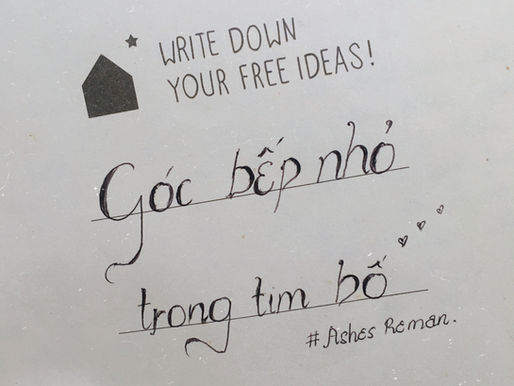 WRITE DOWN
YOUR FREE IDEAS!
Góc bếp nhỏ
trong tim bố
# Ashes Reman.